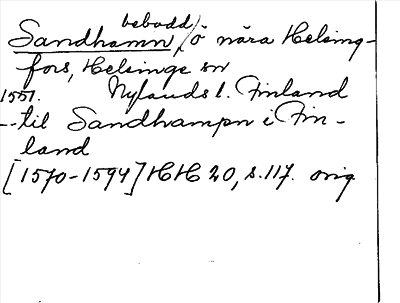 bebodd
Sandhamn, / ö nära Helsing-
fors, Helsinge sn
1551. Nylands l. Finland
-- til Sandhampn i Fin-
land
[1570-1594] HH 20, s. 117. orig